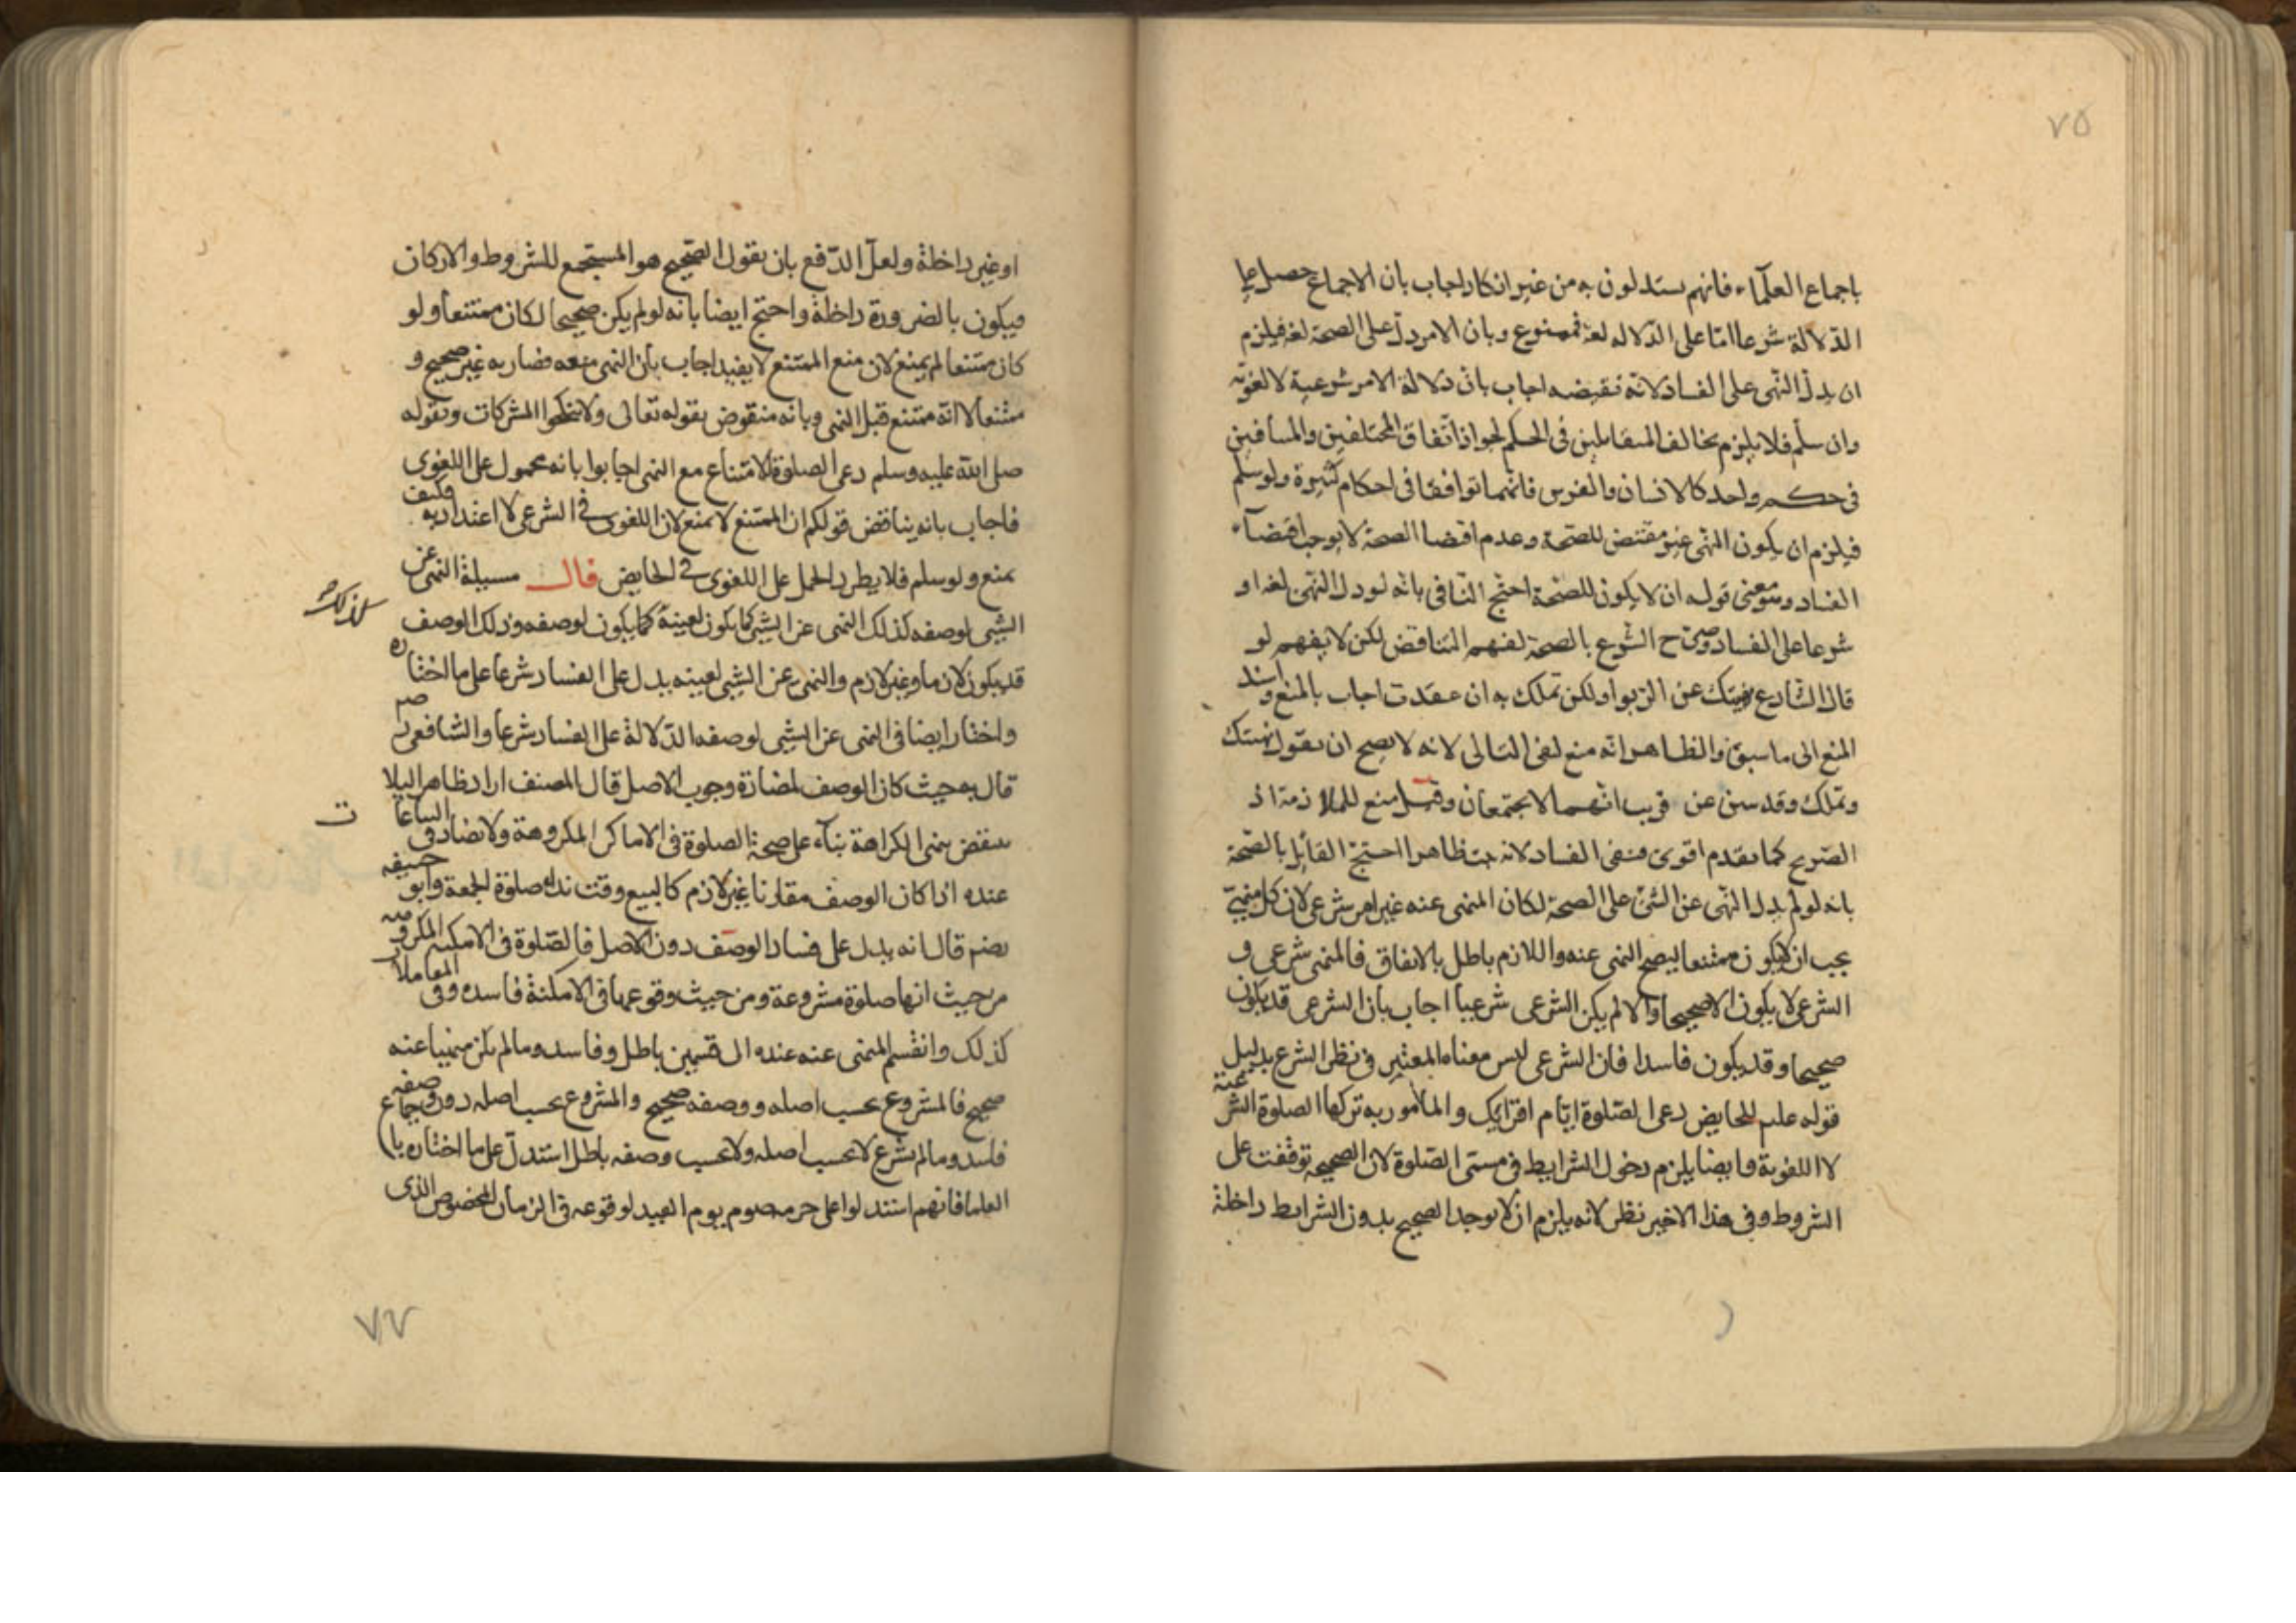 ٧٥
باجماع العلمآء فانهم يستدلون به من غير انكار اجاب بان الاجماع حصل على
الدلالة شرعا امّا على الدّلاله لغة فممنوع وبان الامر دلّ على الصحة لغة فيلزم
ان يدلّ النّهى على الفساد لانه نقيضه اجاب بان دلالة الامر شرعية لا لغويّه
وان سلّم فلا يلزم تخالف المتقابلين فى الحكم لجواز اتّفاق المختلفين والمتنافيين
فى حكم واحد كالانسان والفرس فانّهما توافقا فى احكام كثيرة ولو سلّم
فيلزم ان يكون النّهى غير مقتض للصّحة وعدم اقتضا الصحة لا يوجب اقتضآء
الفساد وهو معنى قوله ان لا يكون للصّحة احتج النّافى بانه لو دل النّهى لغة او
شرعا على الفساد وصرّح الشّرع بالصحة لفهم التناقض لكن لا يفهم لو
قال الشارع نهيتك عن الربوا ولكن تملك به ان عقدت اجاب بالمنع واسند
المنع الى ما سبق والظاهر انه منع لنفى التالى لانه لا يصح ان يقول نهيتك
وتملك وقد سبق عن قريب انّهما لا يجتمعان وقيل منع للملازمة اذ
الصّريح كما تقدم اقوى فنفى الفساد لانه ثبت ظاهرا احتجّ القائل بالصّحة
بانه لو لم يدل النّهى عن الشئ على الصحة لكان المنهى عنه غير امر شرعى لان كل منهىّ
يجب ان لا يكون ممتنعا ليصح النهى عنه واللازم باطل بالاتفاق فالمنهى شرعى و
الشرعى لا يكون الا صحيحا والا لم يكن الشرعى شرعيا اجاب بان الشرعى قد يكون
صحيحا وقد يكون فاسدا فان الشرعى ليس معناه المعتبر فى نظر الشرع بدليل
قوله علم للحايض دعى الصّلوة ايّام اقرائك والمأمور به تركها الصلوة الشرعية
لا اللغوية وايضا يلزم دخول الشرايط فى مسمّى الصّلوة لان الصحيحة توقفت على
الشروط وفى هذا الاخير نظر لانه يلزم ان لا يوجد الصحيح بدون الشرايط داخلة
او غير داخلة ولعلّ الدّفع بان يقول الصّحيح هو المستجمع للشروط والاركان
فيكون بالضرورة داخلة واحتج ايضا بانه لو لم يكن صحيحا لكان ممتنعا ولو
كان ممتنعا لم يمنع لان منع الممتنع لا يفيد اجاب بان النهى منعه فصار به غير صحيح و
ممتنعا لا انّه ممتنع قبل النهى وبانه منقوض بقوله تعالى ولا تنكحوا المشركات وبقوله
صلى الله عليه وسلم دعى الصلوة للامتناع مع النهى اجابوا بانه محمول على اللغوى
فاجاب بانه يناقض قولكم ان الممتنع لا يمنع لان اللغوى فى الشرعى لا اعتداد به فكيف
يمنع ولو سلم فلا يطرد الحمل على اللغوى فى الحايض قال مسيلة النهى عن
الشيى لوصفه كذلك النهى عن الشيى كما يكون لعينه كما يكون لوصفه وذلك الوصف
كذلك
قد يكون لازما وغير لازم والنهى عن الشيى لعينه يدل على الفساد شرعا على ما اختاره
واختار ايضا فى النهى عن الشيى لوصفه الدّلالة على الفساد شرعا والشافعى
قال به حيث كان الوصف لمضادة وجوب الاصل قال المصنف اراد ظاهرا ليلا
ينقض بنهى الكراهة بنآء على صحة الصلوة فى الاماكن المكروهة والساعات ولا تضاد فى
عنده اذا كان الوصف مقارنا غير لازم كالبيع وقت ندآء صلوة الجمعة وابو حنيفه
رضه قال انه يدل على فساد الوصف دون الاصل فالصّلوة فى الامكنه المكروهه
من حيث انها صلوة مشروعة ومن حيث وقوعها فى الامكنة فاسده وفى المعاملات
كذلك وانقسم المنهى عنه عنده الى قسمين باطل وفاسد وما لم يكن منهيا عنه
صحيح فالمشروع بحسب اصله ووصفه صحيح والمشروع بحسب اصله دون وصفه
فاسد وما لم يشرع لا بحسب اصله ولا بحسب وصفه باطل استدلّ على ما اختاره باجماع
العلما فانهم استدلوا على حرمة صوم يوم العيد لوقوعه فى الزمان المخصوص الذى